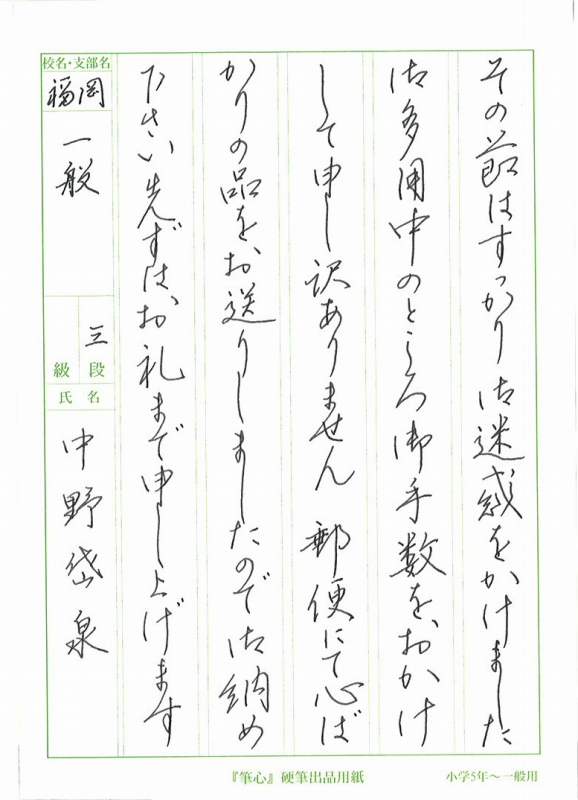 その節はすっかり御迷惑をかけました
御多用中のところ御手数を、おかけ
して申し訳ありません 郵便にて心ば
かりの品を、お送りしましたので御納め
下さい先ずは、お礼まで申し上げます
校名・支部名
福岡
一般
三
段
級
氏名
中野岱泉
『筆心』硬筆出品用紙
小学5年～一般用